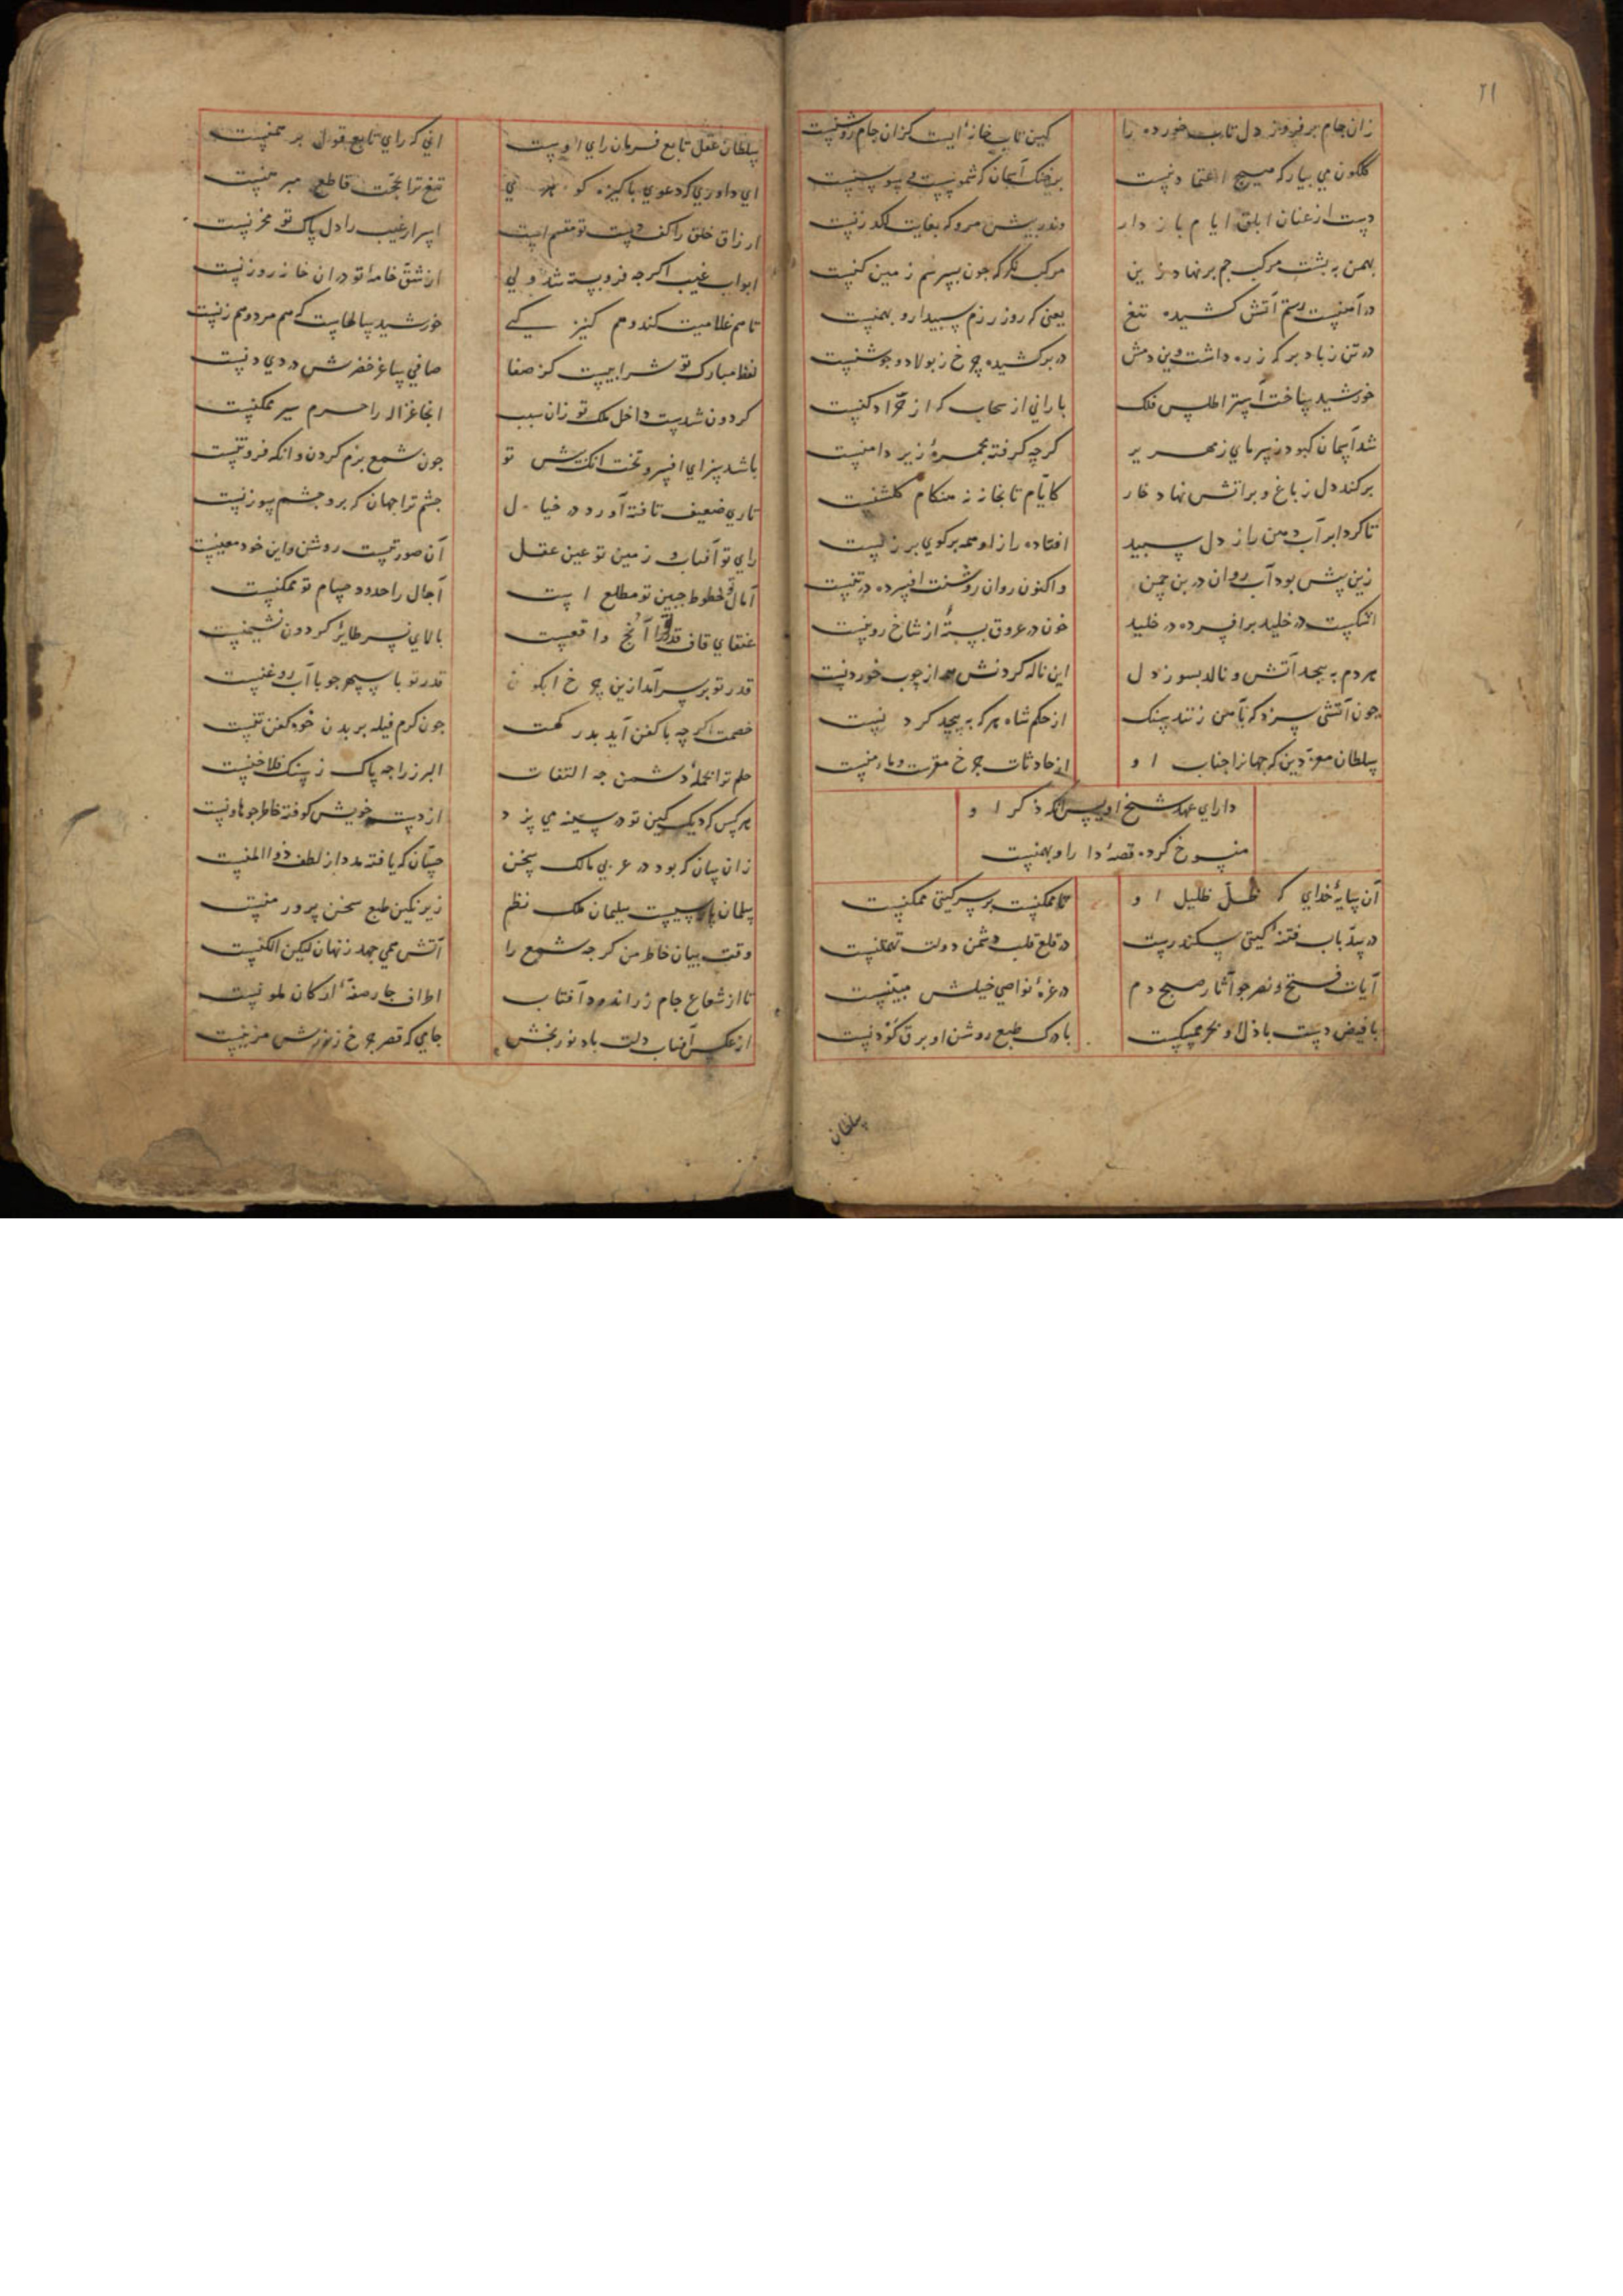 ۲۱
زان جام برفروز دل تاب خورده را کین تاب خانه ایست کزان جام روشنیست
گلگون می بیار که هیچ اعتماد نیست بر خنک آسمان که شموسیست و سوسنیست
دست از عنان ابلق ایام باز دار وندر پیش مرو که بغایت لکدزنیست
بهمن به پشت مرکب جم برنهاد زین مرکب نگر که چون بسرسم زمین کنیست
در آهنیست رستم آتش کشیده تیغ یعنی که روز رزم سپیدار و بهمنیست
در تن ز باد برکه زره داشت وین دمش در بر کشیده چرخ ز بولاد و جوشنیست
خورشید ساخت استر اطلس فلک بارانی از سحاب که از خز ادکنیست
شد آسمان کبود ز سرمای زمهریر گرچه گرفته مجمره زیر دامنیست
برکند دل ز باغ و بر آتش نهاد خار کایام تابخانه نه هنگام گلشنیست
تا کرد ابر آب دهن راز دل سپید افتاده راز او همه بر کوی برزنیست
زین پیش بود آب روان در بن چمن واکنون روان روشنت افسرده در تنیست
اشکیست در خلید بر افسرده در خلید خون در عروق بسته از شاخ روینیست
هر دم به پیچد آتش و نالد بسوز دل این ناله کردنش همه از چوب خوردنیست
چون آتشی سزد که بآهن زنند سنک از حکم شاه هر که به پیچد کردنیست
سلطان معز دین که جهانرا جناب او از حادثات چرخ مقرست و مامنیست
دارای عهد شیخ اویس آنکه ذکر او
منسوخ کرده قصه دارا و بهمنیست
آن سایه خدای که ظل ظلیل او تا ممکنیست بر سر گیتی ممکنیست
در سد باب فتنه گیتی سکندریست در قلع قلب دشمن دولت تهمتنیست
آیات فتح و نصر چو آثار صبح دم در غره نواصی خیلش مبینیست
با فیض دست باذل او بحر ممسکیست با درک طبع روشن او برق کودنیست
سلطان
سلطان عقل تابع فرمان رای اوست انی که رای تابع قول برهمنیست
ای داوری که دعوی پاکیزه گوهری تیغ ترا بحجت قاطع مبرهنیست
ارزاق خلق را کف دست تو مقسم است اسرار غیب را دل پاک تو مخزنیست
ابواب غیب اگرچه فروبسته شد ولی از شق خامه تو در ان خانه روزنیست
تا هم غلامیت کند و هم کنیزکی خورشید سالهاست که هم مرد و هم زنیست
لفظ مبارک تو شرابیست کز صفا صافی ساغر خضرش دردی دنیست
گردون شدست داخل ملک تو زان سبب انجا غزاله را حرم سیر ممکنیست
باشد سزای افسر و تخت انکش تو چون شمع بزم کردن و انکه فروتنیست
تاری ضعیف تافته آورد در خیال چشم ترا جهان که برو چشم سوزنیست
رای تو آفتاب و زمین تو عین عقل آن صورتیست روشن و این خود معینیست
آمال را خطوط جبین تو مطلع است آجال را حدود حسام تو ممکنیست
عنقای قاف قدر ترا آنچ واقعیست بالای نسر طایر گردون نشیمنیست
قدر تو بر سر آمد ازین چرخ ابکون قدر تو با سپهر چو با آب روغنیست
خصمت اگرچه با کفن آید بدر کهت چون کرم فیله بر بدن خود کفن تنیست
حلم ترا بحمله دشمن چه التفات البرز را چه باک ز سنک فلاخنیست
هر کس که دیک کین تو در سینه می پزد از دست خویش کوفته خاطر چو هاونیست
زان سان که بود در عربی مالک سخن حسان که یافته مدد از لطف ذوالمنیست
سلمان پارسیست سلیمان ملک نظم زیر نکین طبع سخن پرور منیست
وقت بیان خاطر من گرچه شمع را آتش همی جهد ز زبان لیکن الکنیست
تا از شعاع جام زر اندود آفتاب اطراف چار صفه ارکان ملونیست
از عکس آفتاب دلت باد نوربخش جایی که قصر چرخ ز نورش مزینیست